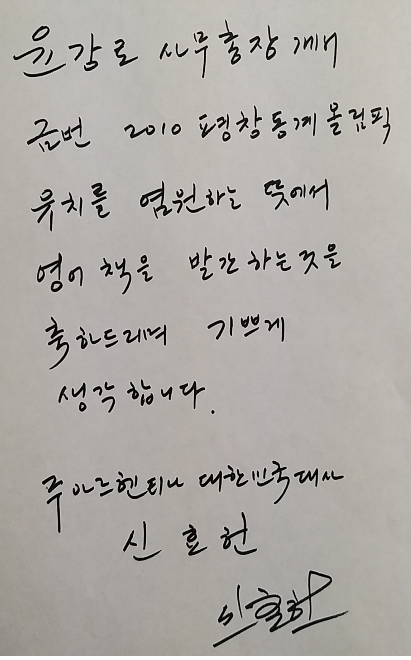 윤강로 사무총장 께
금번 2010 평창동계올림픽
유치를 염원하는 뜻에서
영어 책을 발간하는것을
축하드리며 기쁘게
생각합니다.
주아르헨티나 대한민국대사
신효헌